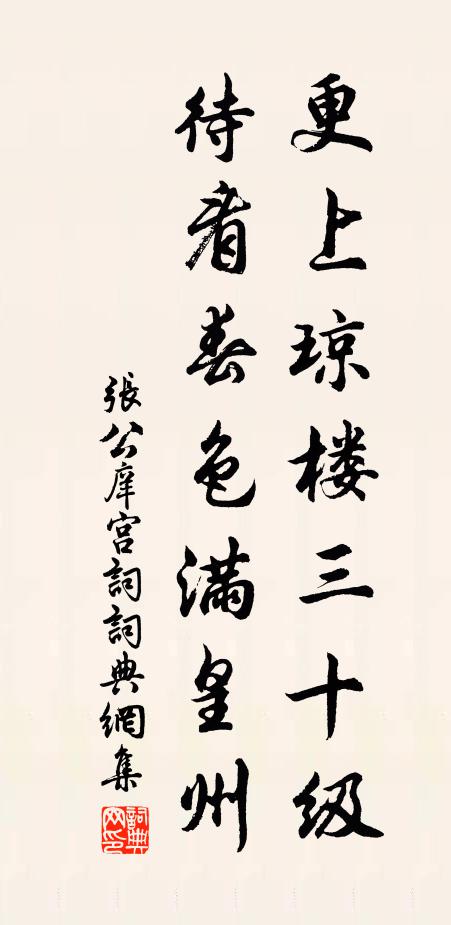 更上琼楼三十级
待看春色满皇州
張公庠宮詞詞典網集
詞典网印